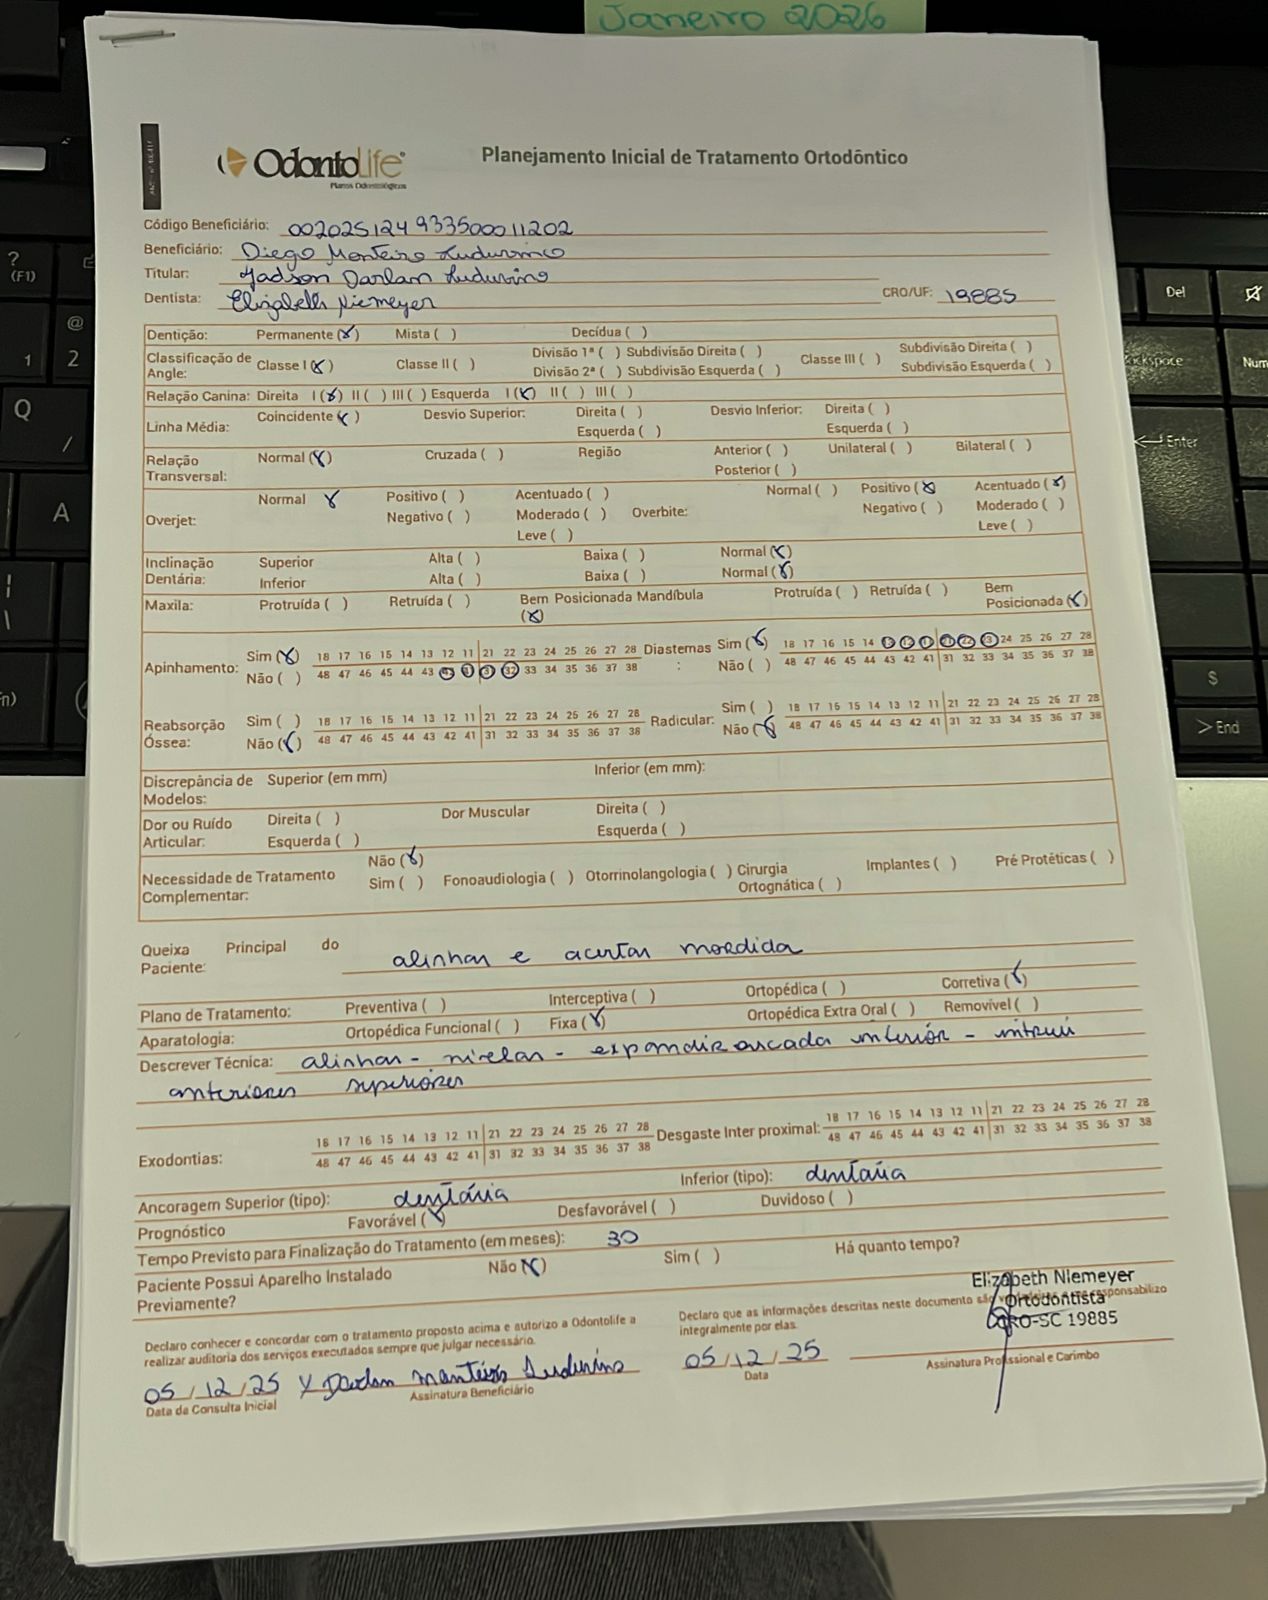 Janeiro 2026
OdontoLife®
Planos Odontológicos
Planejamento Inicial de Tratamento Ortodôntico
Código Beneficiário: 00202512493350001 1202
Beneficiário: Diego Monteiro Ludurino
Titular: Jadson Darlan Ludurino
Dentista: Elizabeth Niemeyer CRO/UF: 19885
Dentição: Permanente (x) Mista ( ) Decídua ( )
Classificação de Angle: Classe I (x) Classe II ( ) Divisão 1ª ( ) Subdivisão Direita ( ) Classe III ( ) Subdivisão Direita ( )
Divisão 2ª ( ) Subdivisão Esquerda ( ) Subdivisão Esquerda ( )
Relação Canina: Direita I (x) II ( ) III ( ) Esquerda I (x) II ( ) III ( )
Linha Média: Coincidente (x) Desvio Superior: Direita ( ) Desvio Inferior: Direita ( )
Esquerda ( ) Esquerda ( )
Relação Transversal: Normal (x) Cruzada ( ) Região Anterior ( ) Unilateral ( ) Bilateral ( )
Posterior ( )
Normal x Positivo ( ) Acentuado ( ) Normal ( ) Positivo (x) Acentuado (x)
Overjet: Negativo ( ) Moderado ( ) Overbite: Negativo ( ) Moderado ( )
Leve ( ) Leve ( )
Inclinação Dentária: Superior Alta ( ) Baixa ( ) Normal (x)
Inferior Alta ( ) Baixa ( ) Normal (x)
Maxila: Protruída ( ) Retruída ( ) Bem Posicionada (x) Mandíbula Protruída ( ) Retruída ( ) Bem Posicionada (x)
Apinhamento: Sim (x) 18 17 16 15 14 13 12 11 21 22 23 24 25 26 27 28 Diastemas: Sim (x) 18 17 16 15 14 13 12 11 21 22 23 24 25 26 27 28
Não ( ) 48 47 46 45 44 43 42 41 31 32 33 34 35 36 37 38 Não ( ) 48 47 46 45 44 43 42 41 31 32 33 34 35 36 37 38
Reabsorção Óssea: Sim ( ) 18 17 16 15 14 13 12 11 21 22 23 24 25 26 27 28 Radicular: Sim ( ) 18 17 16 15 14 13 12 11 21 22 23 24 25 26 27 28
Não (x) 48 47 46 45 44 43 42 41 31 32 33 34 35 36 37 38 Não (x) 48 47 46 45 44 43 42 41 31 32 33 34 35 36 37 38
Discrepância de Modelos: Superior (em mm) Inferior (em mm):
Dor ou Ruído Articular: Direita ( ) Dor Muscular Direita ( )
Esquerda ( ) Esquerda ( )
Necessidade de Tratamento Complementar: Não (x)
Sim ( ) Fonoaudiologia ( ) Otorrinolangologia ( ) Cirurgia Ortognática ( ) Implantes ( ) Pré Protéticas ( )
Queixa Principal do Paciente: alinhar e acertar mordida
Plano de Tratamento: Preventiva ( ) Interceptiva ( ) Ortopédica ( ) Corretiva (x)
Aparatologia: Ortopédica Funcional ( ) Fixa (x) Ortopédica Extra Oral ( ) Removível ( )
Descrever Técnica: alinhar - nivelar - expandir arcada inferior - intruir
anteriores superiores
Exodontias: 18 17 16 15 14 13 12 11 21 22 23 24 25 26 27 28 Desgaste Inter proximal: 18 17 16 15 14 13 12 11 21 22 23 24 25 26 27 28
48 47 46 45 44 43 42 41 31 32 33 34 35 36 37 38 48 47 46 45 44 43 42 41 31 32 33 34 35 36 37 38
Ancoragem Superior (tipo): dentária Inferior (tipo): dentária
Prognóstico Favorável (x) Desfavorável ( ) Duvidoso ( )
Tempo Previsto para Finalização do Tratamento (em meses): 30
Paciente Possui Aparelho Instalado Previamente? Não (x) Sim ( ) Há quanto tempo?
Declaro conhecer e concordar com o tratamento proposto acima e autorizo a Odontolife a
realizar auditoria dos serviços executados sempre que julgar necessário.
Declaro que as informações descritas neste documento são responsabilizo
integralmente por elas.
Elizabeth Niemeyer
Ortodontista
CRO-SC 19885
05/12/25 X Darlan Monteiro Ludurino 05/12/25
Data da Consulta Inicial Assinatura Beneficiário Data Assinatura Profissional e Carimbo
? (F1)
1
@ 2
Q
/
A
Del
Num
Enter
$
> End